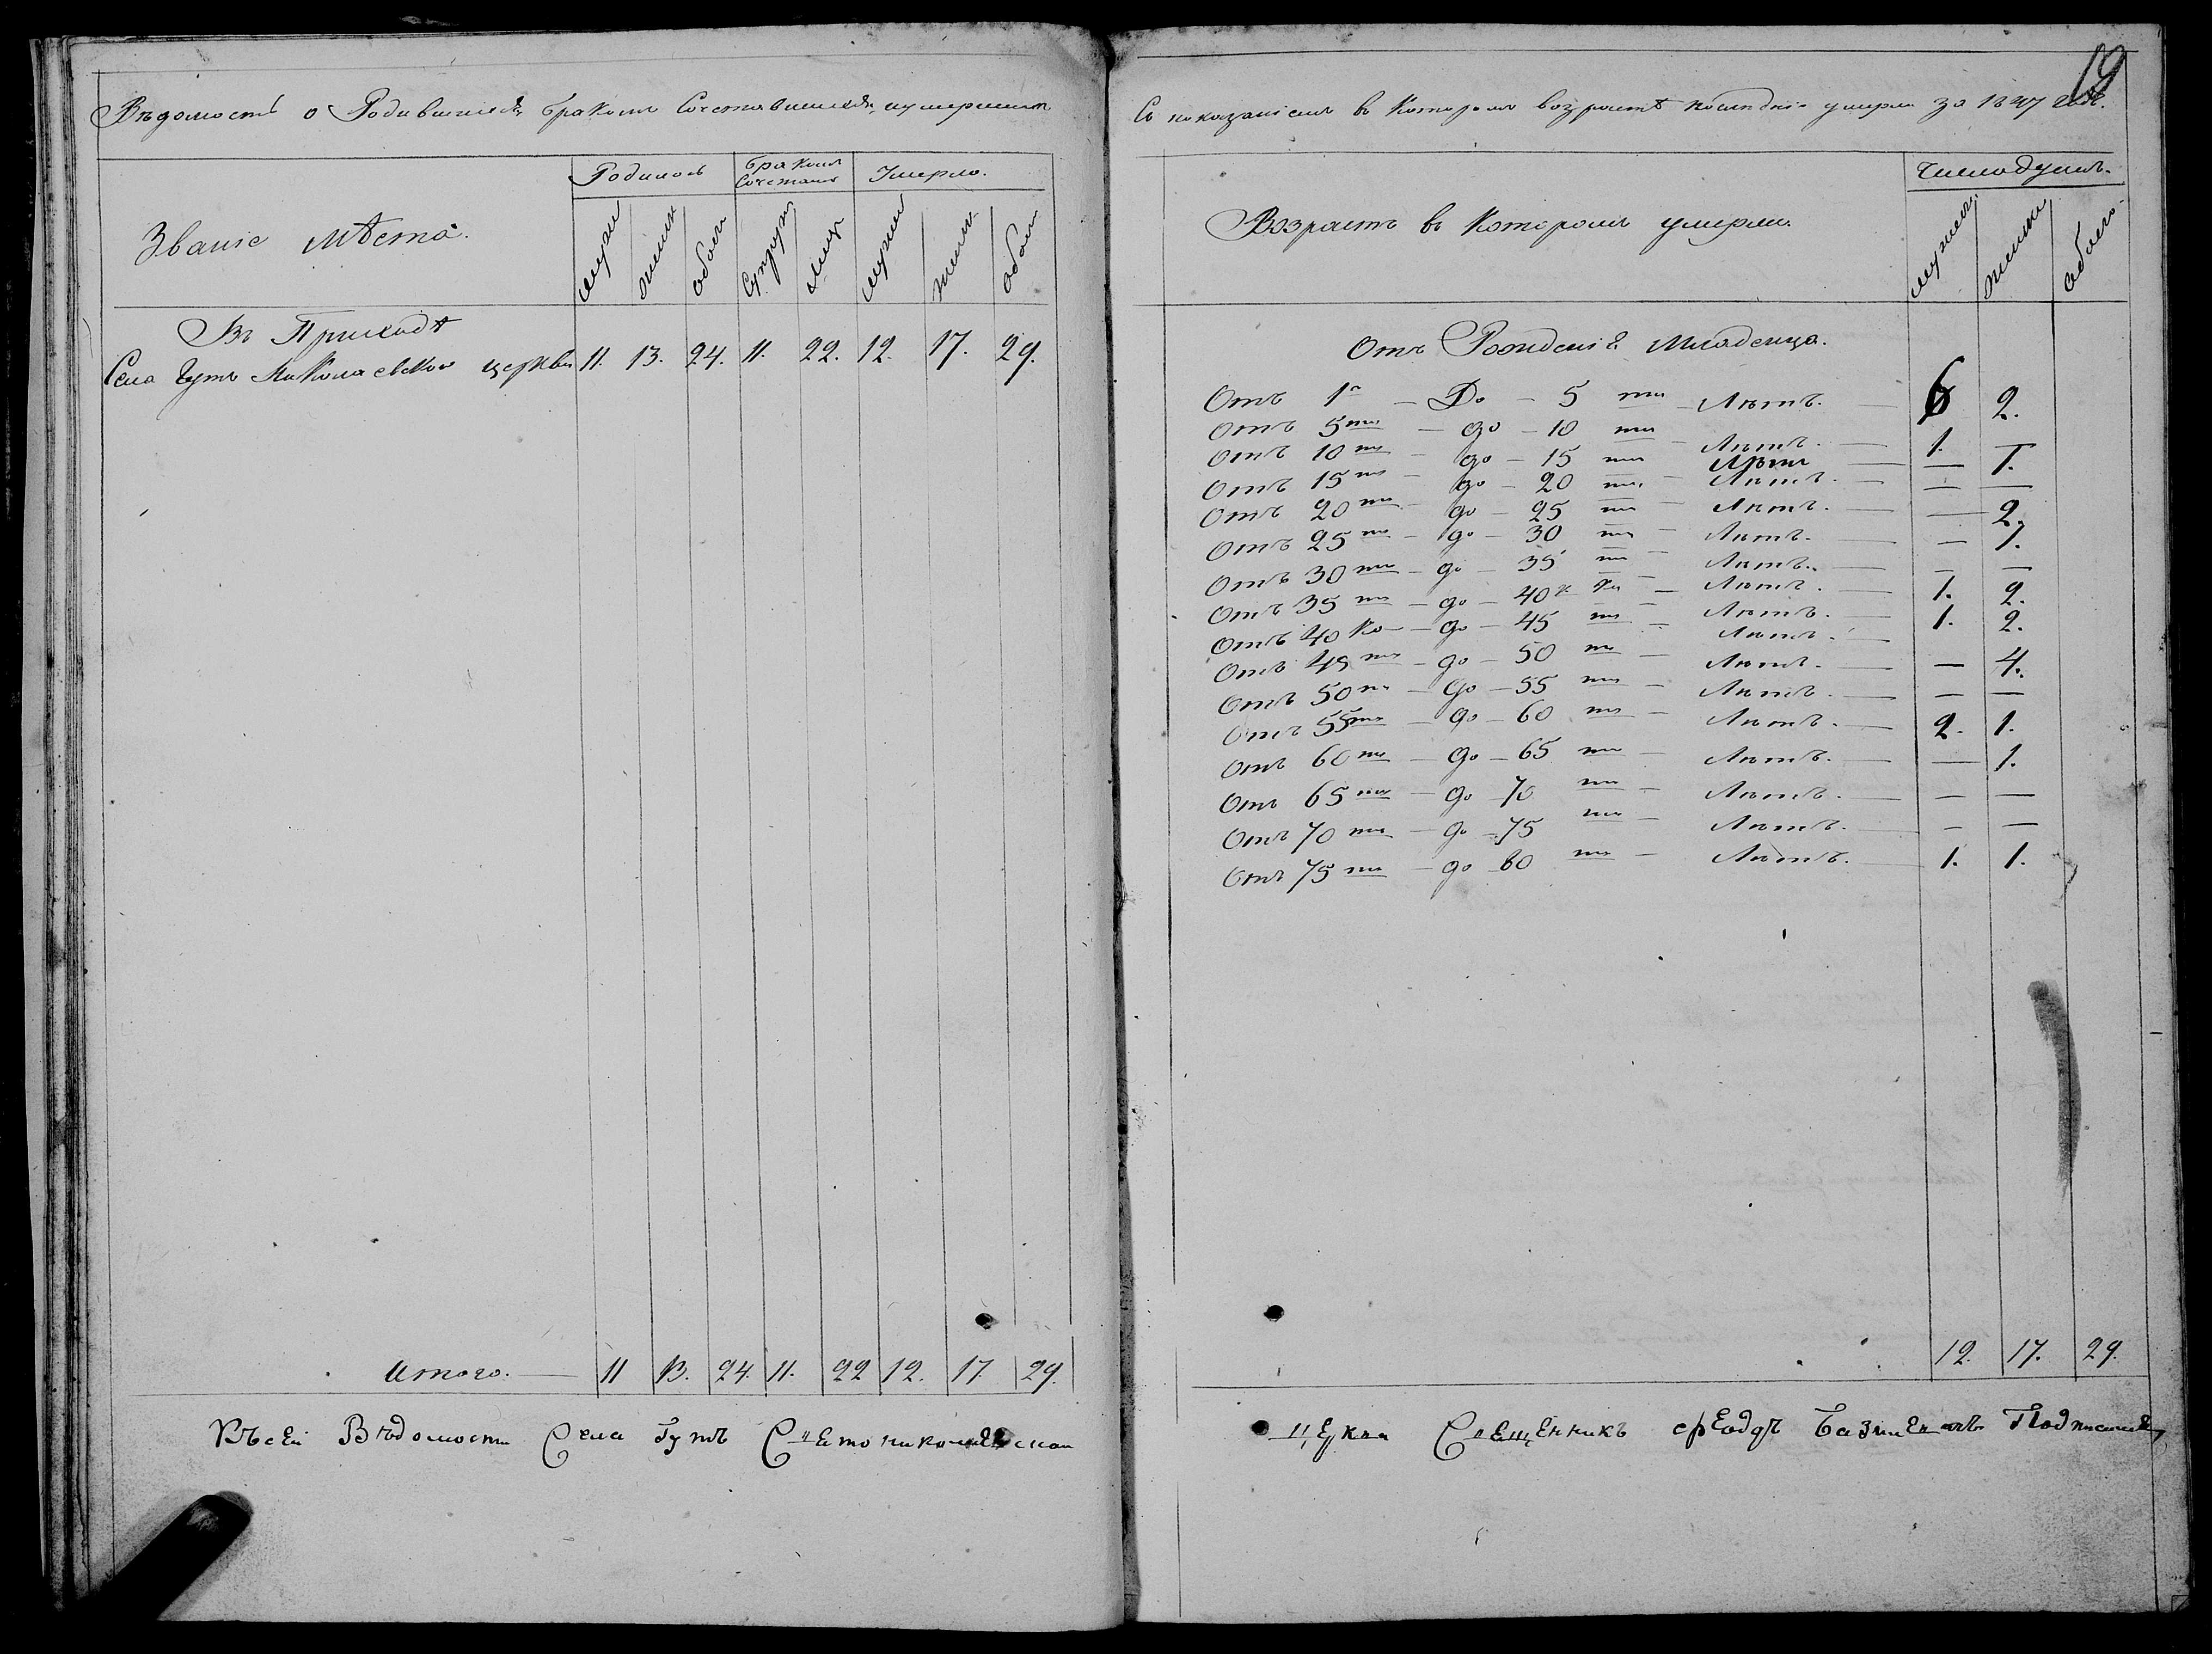 19
Вѣдомость о Родившихся, бракомъ Сочетавшихся, и умершихъ
Съ показаніемъ въ Которомъ возрастѣ послѣдніе умерли за 1847 годъ.
Званіе мѣста. Родилось бракомъ Сочетано Умерло.
мужи женск обоего Супруж лицъ мужеск женск обоего
Въ Приходѣ
Села Гутъ Николаевской церкви 11. 13. 24. 11. 22. 12. 17. 29.
Итого. 11 13. 24. 11. 22 12. 17 29.
Къ сей Вѣдомости Села Гутъ Свѣто николаевской
Возрастъ въ Которомъ умерли. Число душъ.
мужеск женск обоего
Отъ Рожденія Младенца.
Отъ 1го — До — 5 ти — Лѣтъ. — 6 2.
Отъ 5ти — до — 10 ти — Лѣтъ. — 1. —
Отъ 10 ти — до — 15 ти — Лѣтъ — — 1.
Отъ 15 ти — до — 20 ти — Лѣтъ. — — —
Отъ 20 ти — до — 25 ти — Лѣтъ. — — 2.
Отъ 25 ти — до — 30 ти — Лѣтъ. — — 1.
Отъ 30 ти — до — 35 ти — Лѣтъ. — — —
Отъ 35 ти — до — 40 — Лѣтъ. — 1. 2.
Отъ 40 ко — до — 45 ти — Лѣтъ. — 1. 2.
Отъ 45 ти — до — 50 ти — Лѣтъ. — — 4.
Отъ 50 ти — до — 55 ти — Лѣтъ. — — —
Отъ 55ти — до — 60 ти — Лѣтъ. — 2. 1.
Отъ 60 ти — до — 65 ти — Лѣтъ. — — 1.
Отъ 65 ти — до 70 ти — Лѣтъ. — — —
Отъ 70 ти — до — 75 ти — Лѣтъ. — — —
Отъ 75 ти — до 80 ти — Лѣтъ. — 1. 1.
12. 17. 29.
Священникъ Подписался